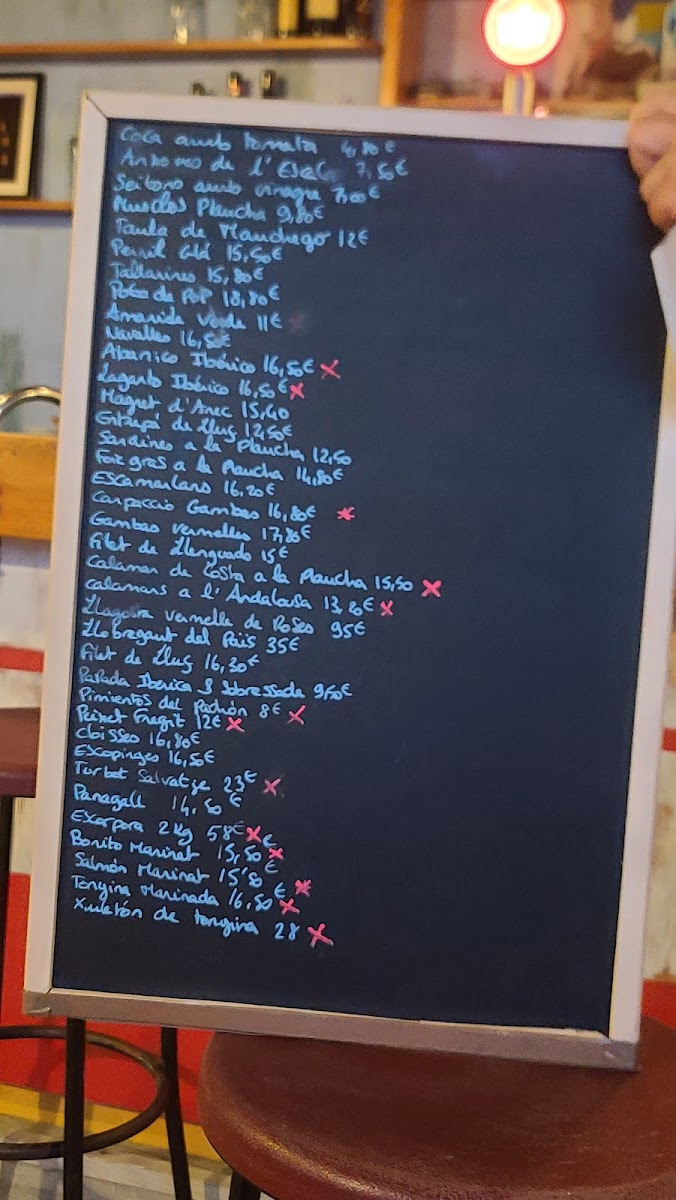 Coca amb tomata 4,80€
Anxoves de l'Escala 7,50€
Seitons amb vinagre 7,00€
Musclos Plancha 9,80€
Taula de Manchego 12€
Pernil Glá 15,50€
Tallarines 15,80€
Pota de PoP 18,80€
Amanida Verda 11€
Navalles 16,50€
Abanico Ibérico 16,50€ X
Lagarto Ibérico 16,50€ X
Magret d'Anec 15,40
de Lluç 12,50€
Sardines a la Plancha 12,50
Foie gras a la Plancha 14,80€
Escamarlans 16,20€
Carpaccio Gambes 16,80€ X
Gambes vermelles 17,80€
Filet de Llenguado 15€
Calamar de Costa a la Plancha 15,50 X
calamars a l'Andalousa 13,20€ X
Llagosta vermelle de Roses 95€
Llobregant del País 35€
Filet de Lluç 16,30€
Papada Iberica y Sobressada 9,50€
Pimientos del Padrón 8€ X
Peixet Fregit 12€ X
Cloisses 16,80€
Escopinyes 16,50€
Turbot Salvatje 23€ X
Panagall 14,50€
Escorpora 2Kg 58€ X
Bonito Marinat 15,50€ X
Salmón Marinat 15'80€
Tonyina Marinada 16,50€ X
Xuletón de tonyina 28 X